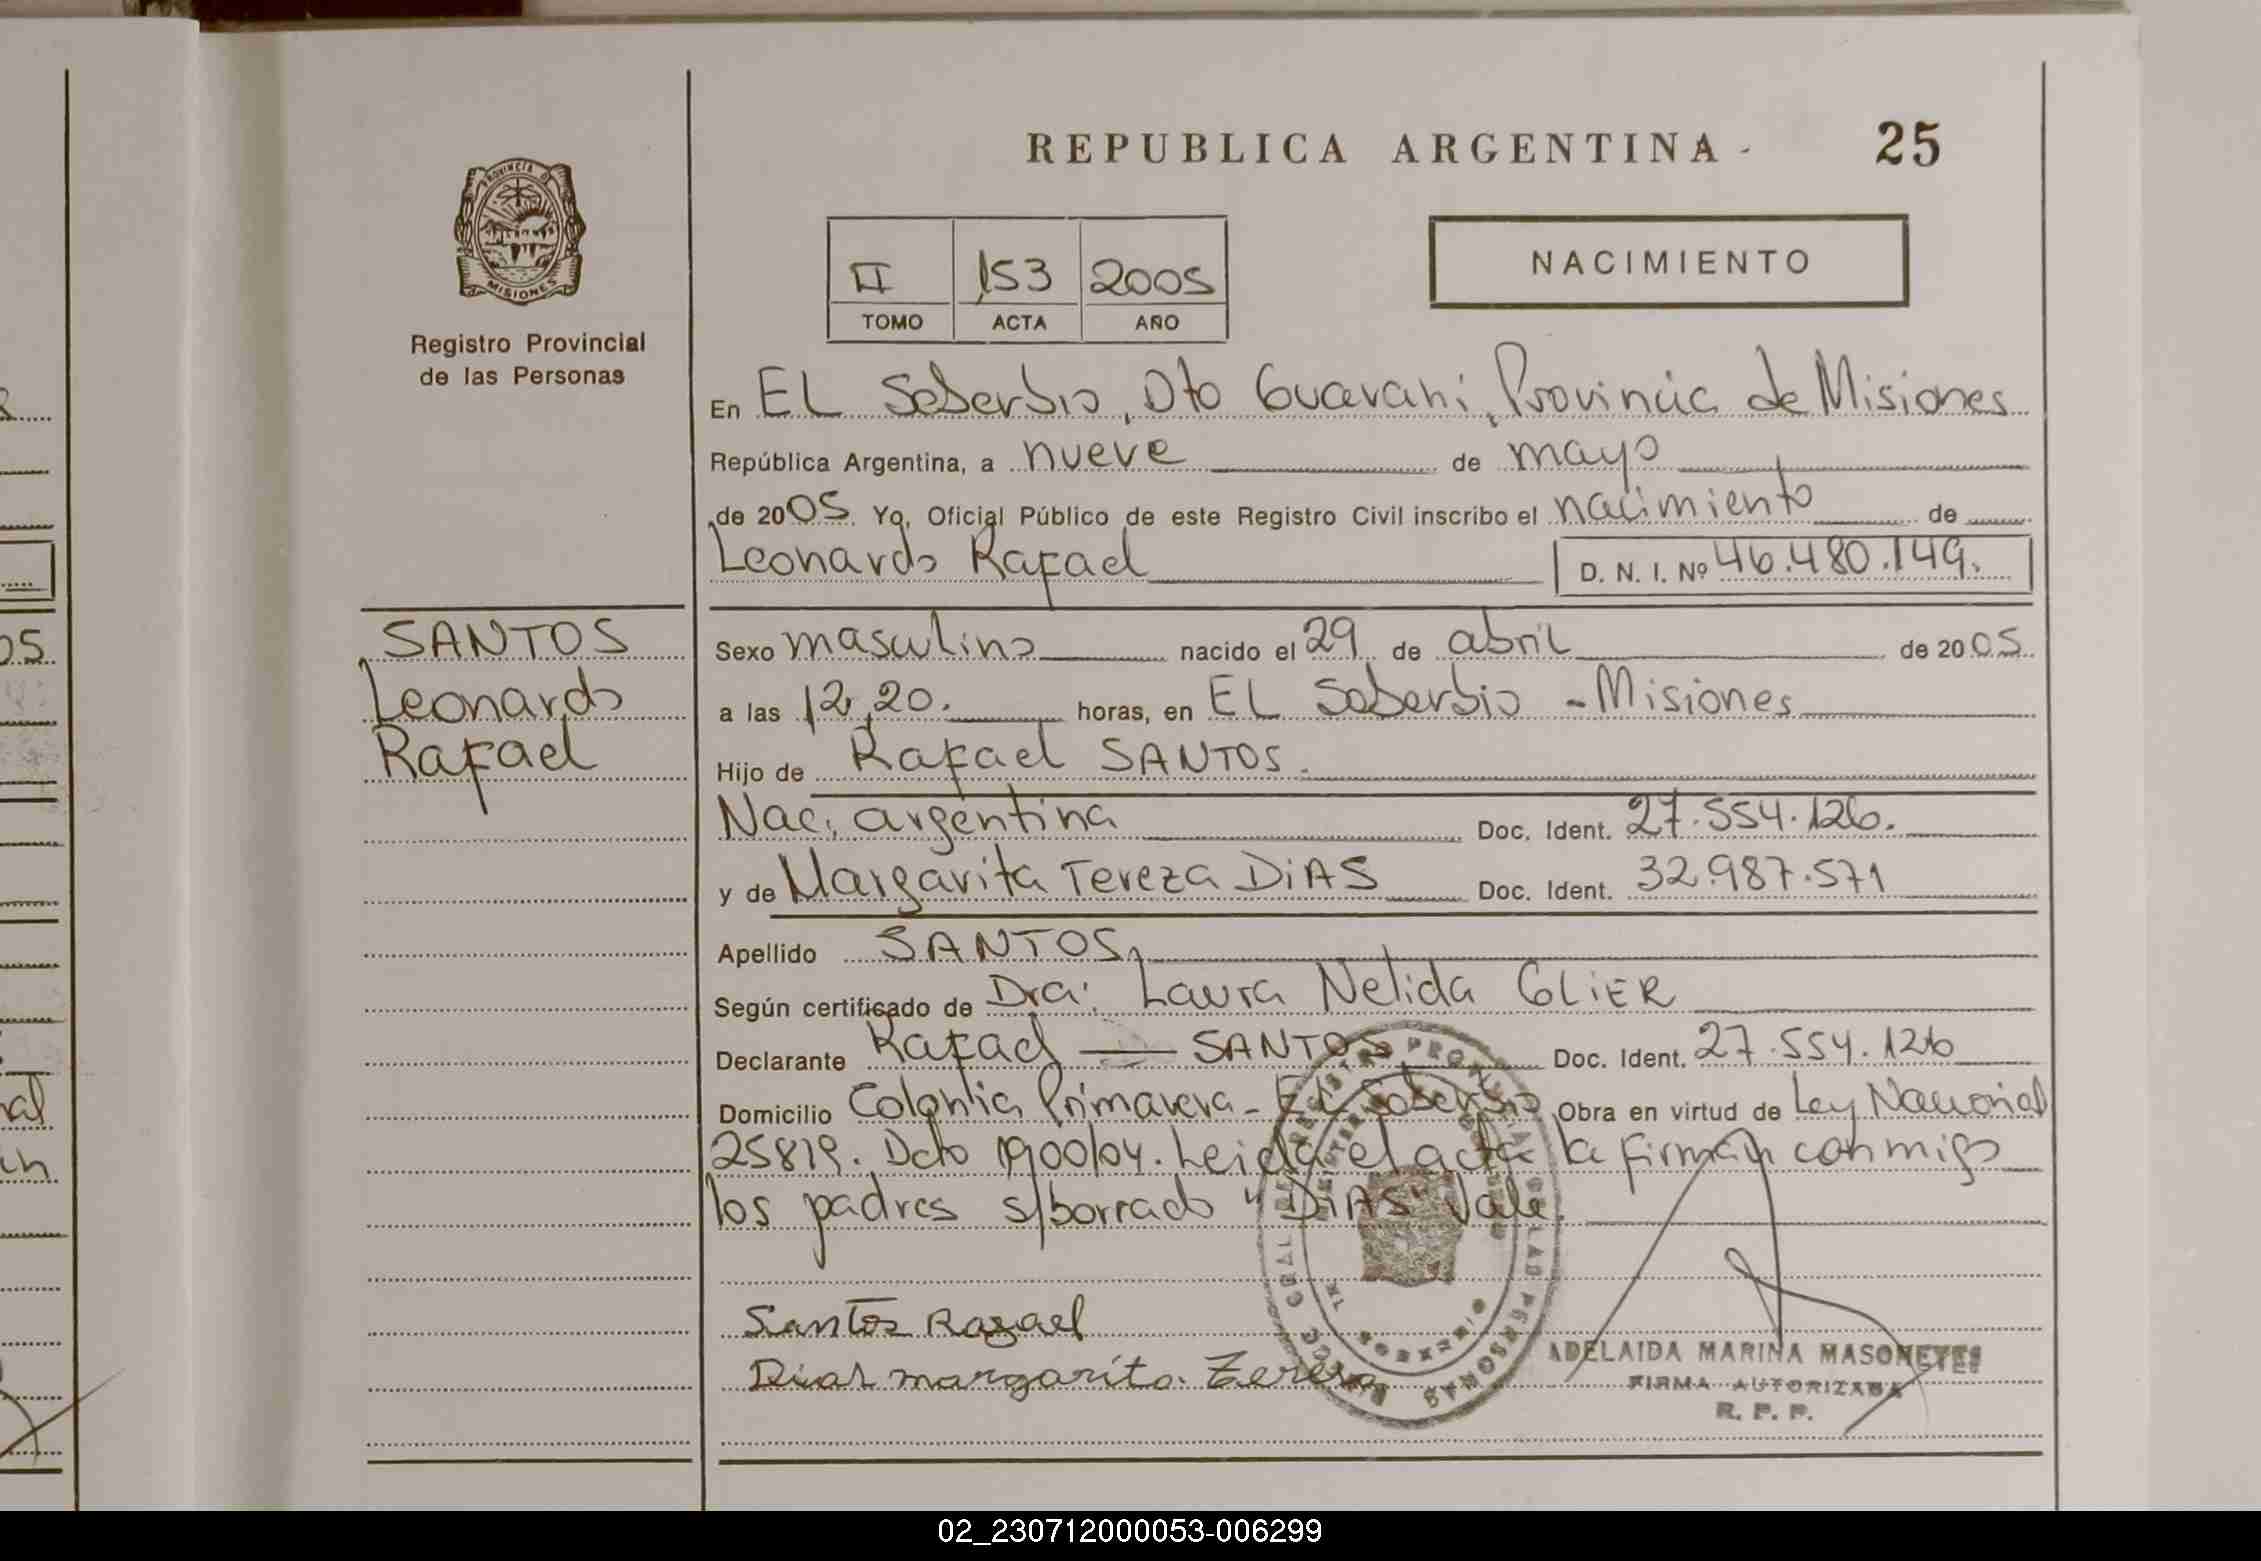 REPUBLICA ARGENTINA - 25
PROVINCIA D
MISIONES
Registro Provincial
de las Personas
II 153 2005
TOMO ACTA AÑO
NACIMIENTO
En EL Soberbio, Dto Guarani, Provincia de Misiones
República Argentina, a nueve de mayo
de 2005 Yo, Oficial Público de este Registro Civil inscribo el nacimiento de
Leonardo Rafael D. N. I. Nº 46.480.149.
SANTOS
Leonardo
Rafael
Sexo masculino nacido el 29 de abril de 2005
a las 12,20. horas, en EL Soberbio - Misiones
Hijo de Rafael SANTOS.
Nac. argentina Doc. Ident. 27.554.126.
y de Margarita Tereza DiAS Doc. Ident. 32.987.571
Apellido SANTOS,
Según certificado de Dra. Laura Nelida GLiER
Declarante Rafael — SANTOS Doc. Ident. 27.554.126
Domicilio Colonia Primavera - EL Soberbio Obra en virtud de Ley Nacional
25819. Dcto 1900/04. Leida el acta la firman conmigo
los padres s/borrado "DiAS" Vale.
Santos Rafael
Dias margarita Tereza
ADELAIDA MARINA MASONEYES
FIRMA AUTORIZADA
R. P. P.
02_230712000053-006299